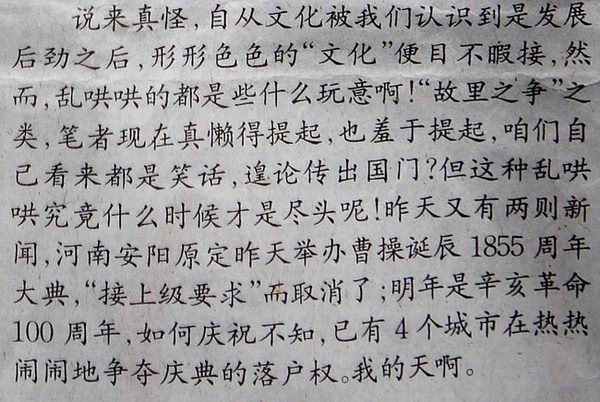 说来真怪,自从文化被我们认识到是发展
后劲之后,形形色色的“文化”便目不暇接,然
而,乱哄哄的都是些什么玩意啊!“故里之争”之
类,笔者现在真懒得提起,也羞于提起,咱们自
己看来都是笑话,遑论传出国门?但这种乱哄
哄究竟什么时候才是尽头呢!昨天又有两则新
闻,河南安阳原定昨天举办曹操诞辰1855周年
大典,“接上级要求”而取消了;明年是辛亥革命
100周年,如何庆祝不知,已有4个城市在热热
闹闹地争夺庆典的落户权。我的天啊。